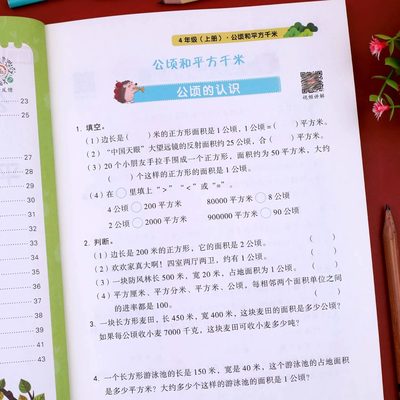 4年级（上册）·公顷和平方千米
公顷和平方千米
公顷的认识
视频讲解
1. 填空。
（1）边长是（ ）米的正方形面积是1公顷，1公顷=（ ）平方米。
（2）“中国天眼”大望远镜的反射面积约25公顷，合（ ）平方米。
（3）20个小朋友手拉手围成一个正方形，面积约为50平方米，大约
（ ）个这样的正方形的面积是1公顷。
（4）在○里填上“>”“<”或“=”。
4公顷○200平方米 80000平方米○8公顷
2公顷○2000平方米 900000平方米○90公顷
2. 判断。
（1）边长是200米的正方形，它的面积是2公顷。（ ）
（2）欢欢家真大啊！四室两厅两卫，约有1公顷。（ ）
（3）一块防风林长500米，宽20米，占地面积1公顷。（ ）
（4）平方厘米、平方分米、平方米、公顷，每相邻两个面积单位之间
的进率都是100。（ ）
3. 一块长方形麦田，长450米，宽400米，这块麦田的面积是多少公顷？
如果每公顷收小麦7000千克，这块麦田可收小麦多少吨？
4. 一个长方形游泳池的长是150米，宽是40米，这个游泳池的占地面积
是多少平方米？大约多少个这样的游泳池的面积是1公顷？
23
25
31
33
35
37
39
41
43